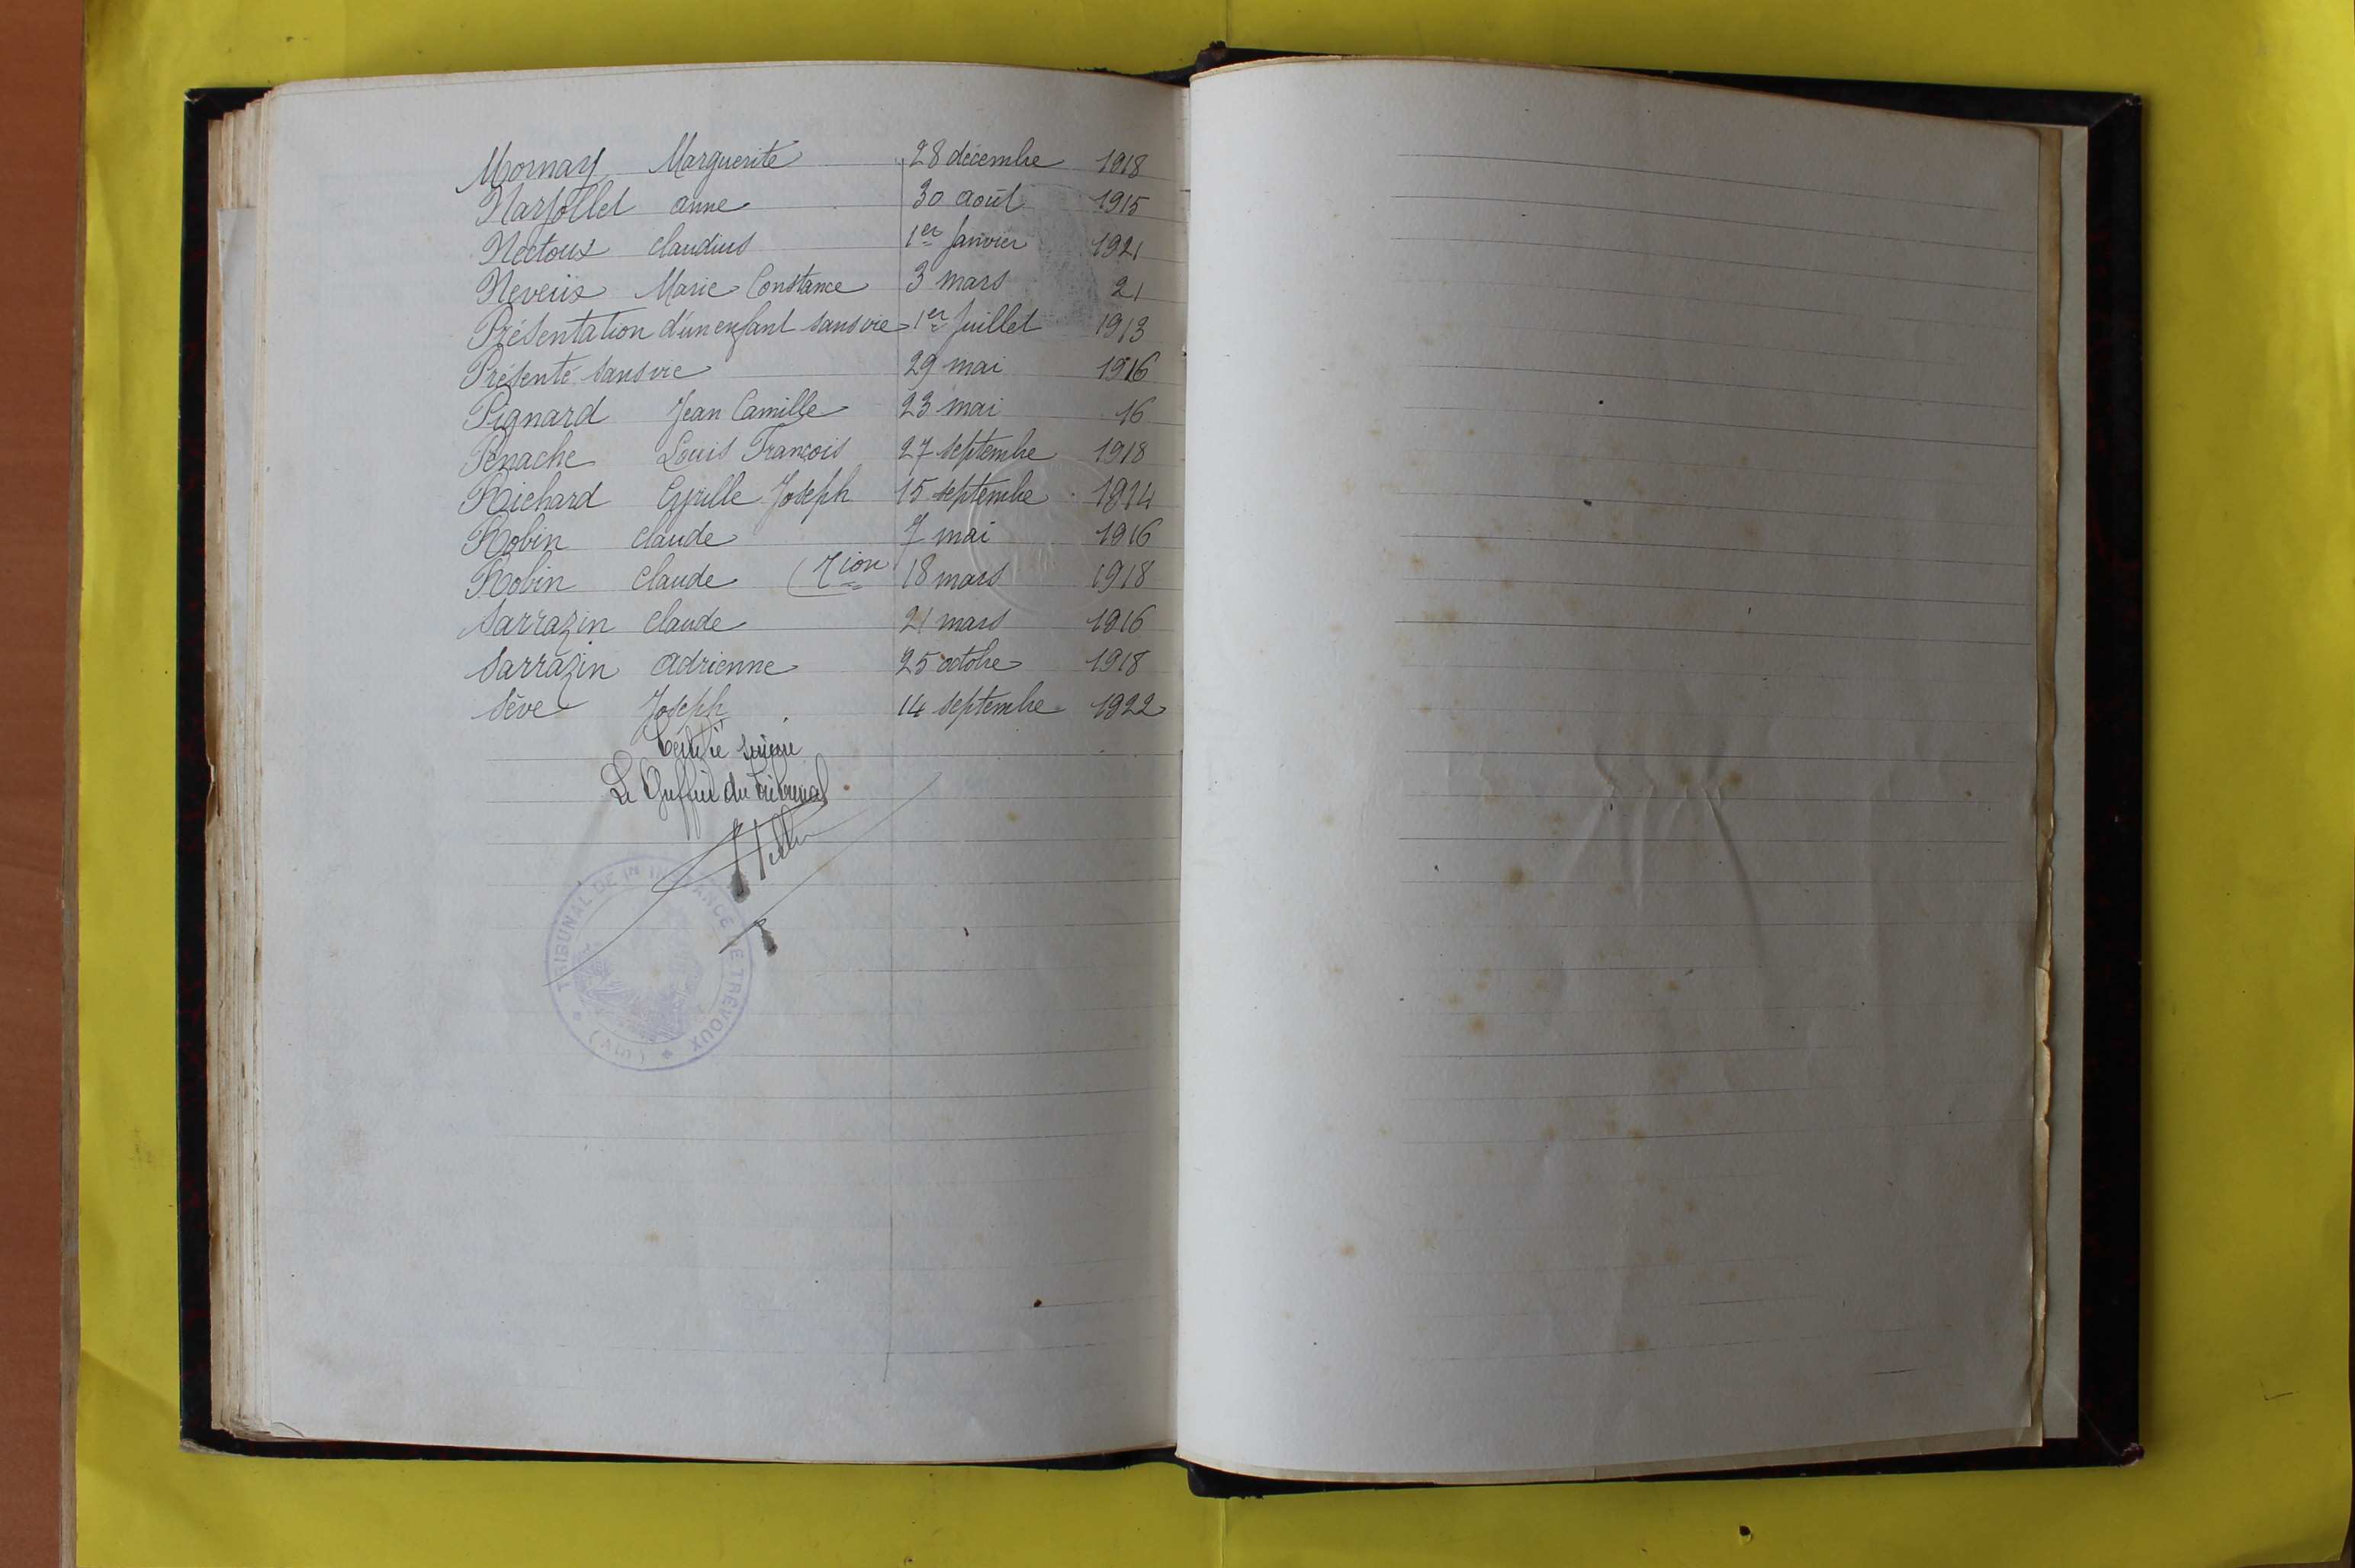 Mornay Marguerite 28 décembre 1918
Narjollet anne 30 août 1915
Nectoux claudius 1er Janvier 1921
Neveüx Marie Constance 3 mars 21
Présentation d'un enfant sans vie 1er Juillet 1913
Présenté sans vie 29 mai 1916
Pignard Jean Camille 23 mai 16
Penache Louis François 27 septembre 1918
Richard Cyrille Joseph 15 septembre 1914
Robin claude 7 mai 1916
Robin claude (Tion 18 mars 1918
Sarrazin claude 21 mars 1916
Sarrazin adrienne 25 octobre 1918
Sève Joseph 14 septembre 1922
Certifié
Le Greffier du tribunal
TRIBUNAL DE INSTANCE DE TRÉVOUX
(AIN)